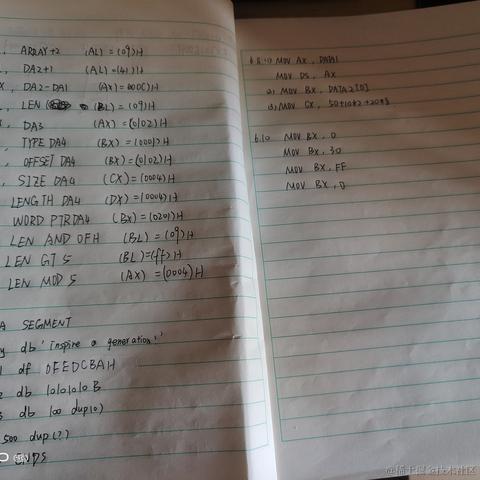 ARRAY+2 (AL)=(09)H
DA2+1 (AL)=(41)H
DA2-DA1 (AX)=(000C)H
LEN (BL)=(09)H
DA3 (AX)=(0102)H
TYPE DA4 (BX)=(0001)H
OFFSET DA4 (BX)=(0102)H
SIZE DA4 (CX)=(0004)H
LENGTH DA4 (DX)=(0004)H
WORD PTR DA4 (BX)=(0201)H
LEN AND 0FH (BL)=(09)H
LEN GT 5 (BL)=(ff)H
LEN MOD 5 (AX)=(0004)H
A SEGMENT
db 'inspire a generation!'
df 0FEDCBAH
db 10101010B
db 100 dup(0)
500 dup(?)
ENDS
MOV AX, DATA1
MOV DS, AX
MOV BX, DATA2[0]
MOV CX,
6.10 MOV BX, 0
MOV BX, 30
MOV BX, FF
MOV BX, 0
@稀土掘金技术社区